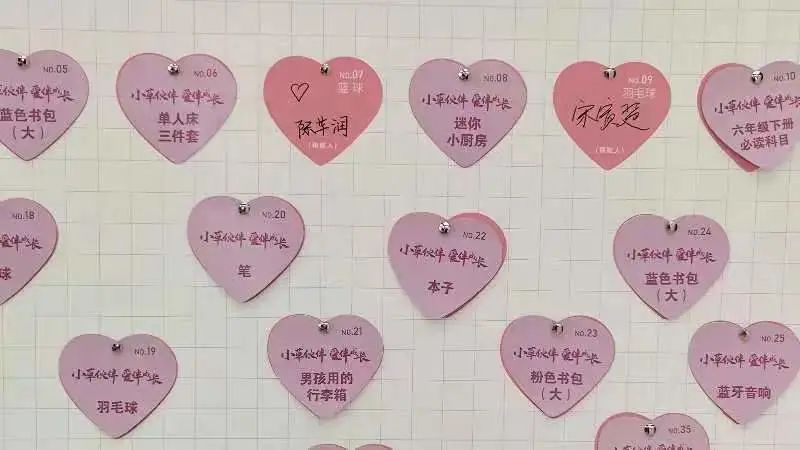 NO.05
小草伙伴 爱伴成长
蓝色书包
（大）
NO.06
小草伙伴 爱伴成长
单人床
三件套
NO.07
篮球
（捐赠人）
NO.08
小草伙伴 爱伴成长
迷你
小厨房
NO.09
羽毛球
（捐赠人）
NO.10
小草伙伴 爱伴成长
六年级下册
必读科目
NO.18
球
NO.20
小草伙伴 爱伴成长
笔
NO.22
小草伙伴 爱伴成长
本子
NO.24
小草伙伴 爱伴成长
蓝色书包
（大）
NO.19
小草伙伴 爱伴成长
羽毛球
NO.21
小草伙伴 爱伴成长
男孩用的
行李箱
NO.23
小草伙伴 爱伴成长
粉色书包
（大）
NO.25
小草伙伴 爱伴成长
蓝牙音响
NO.35
小草伙伴 爱伴成长